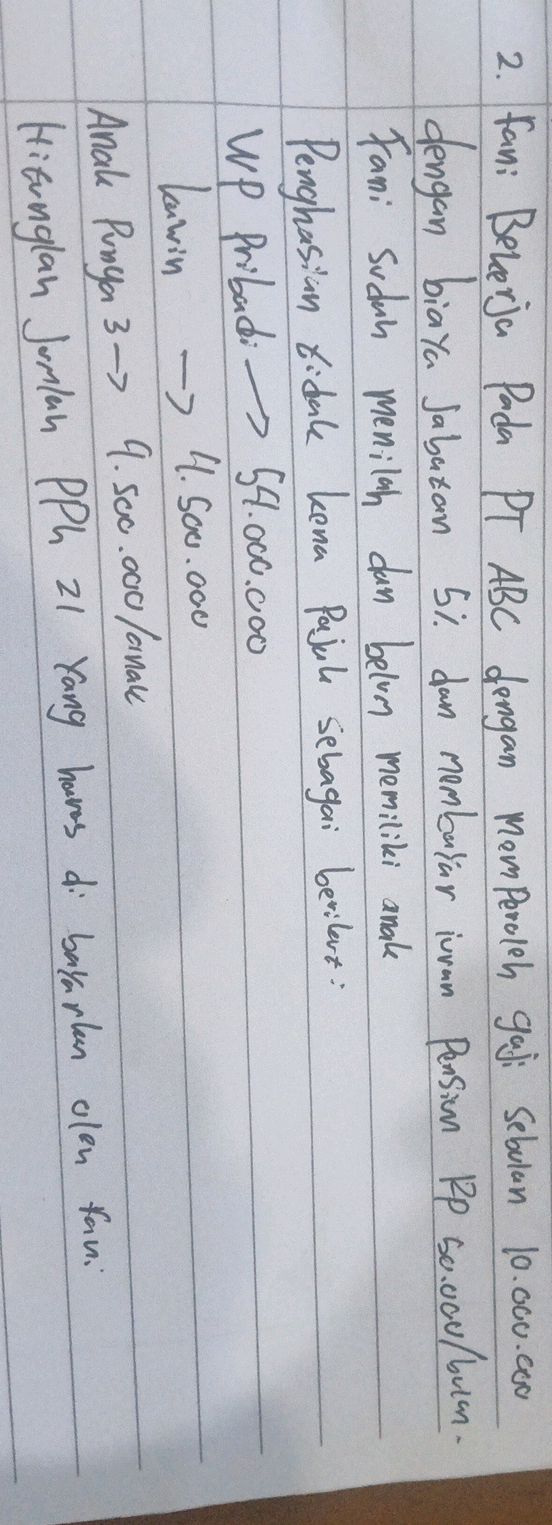 2. Fani Bekerja Pada PT ABC dengan memperoleh gaji sebulan 10.000.000
dengan biaya Jabatan 5% dan membayar iuran Pensiun Rp 50.000/bulan.
Fani sudah menikah dan belum memiliki anak
Penghasilan tidak kena Pajak sebagai berikut:
WP Pribadi -> 54.000.000
kawin -> 4.500.000
Anak Punya 3 -> 4.500.000/anak
Hitunglah Jumlah PPh 21 Yang harus di bayarkan oleh fani